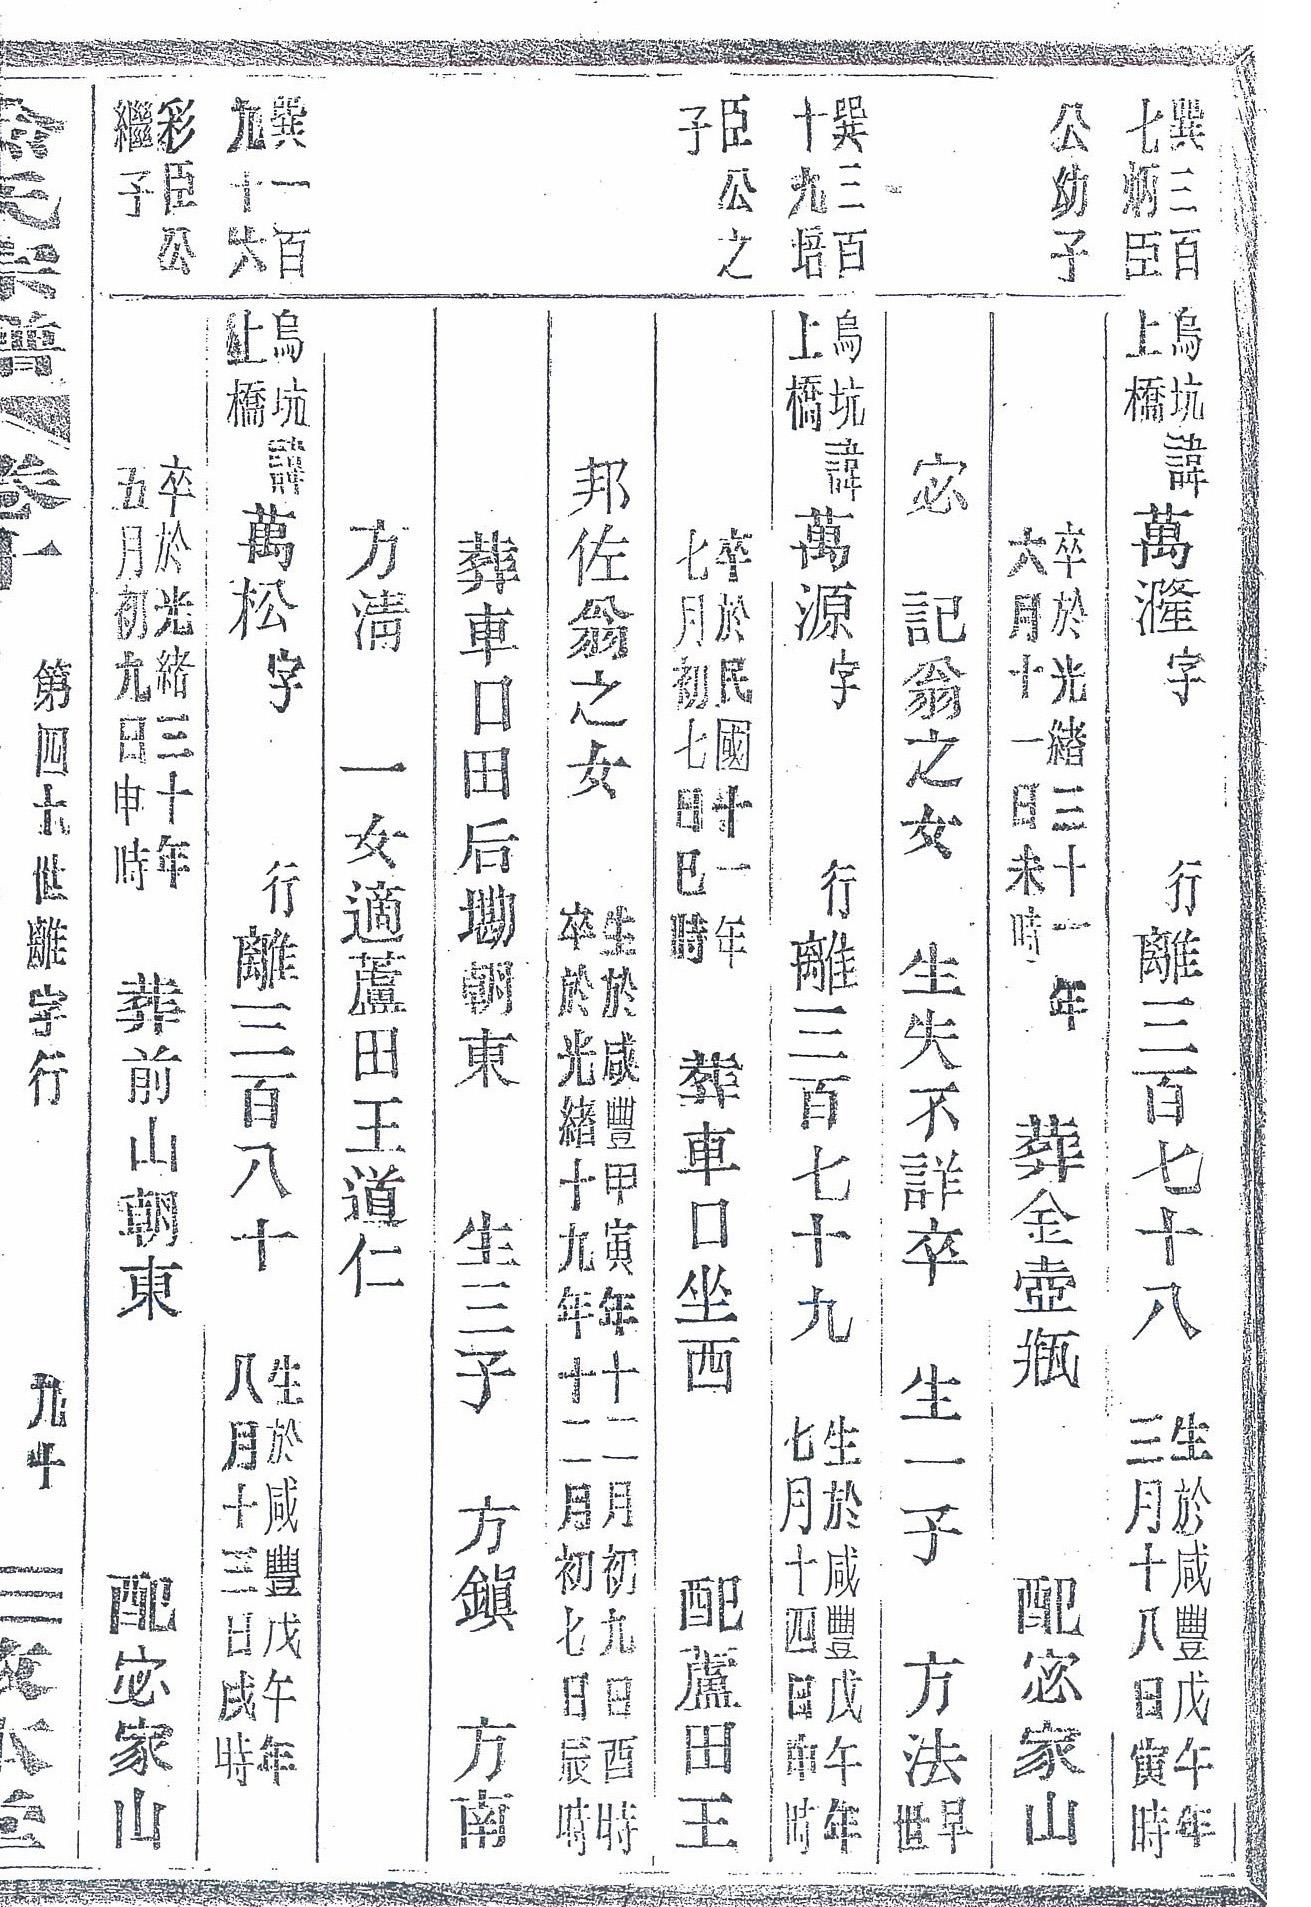 巽三百
七炳臣
公幼子
烏坑
上橋
諱萬漋字
行離三百七十八
生於咸豐戊午年
三月十八日寅時
卒於光緒三十一年
六月十一日未時
葬金壺瓶
配宓家山
宓
記翁之女
生失不詳卒
生一子
方法
早
世
巽三百
十九培
臣公之
子
烏坑
上橋
諱萬源字
行離三百七十九
生於咸豐戊午年
七月十四日申時
卒於民國十一年
七月初七日巳時
葬車口坐西
配蘆田王
邦佐翁之女
生於咸豐甲寅年十二月初九日酉時
卒於光緒十九年十二月初七日辰時
葬車口田后墈朝東
生三子
方鎮
方南
方清
一女適蘆田王道仁
巽一百
九十六
彩臣公
繼子
烏坑
上橋
諱萬松字
行離三百八十
生於咸豐戊午年
八月十三日戌時
卒於光緒三十年
五月初九日申時
葬前山朝東
配宓家山
卷一
第四十世離字行
九十